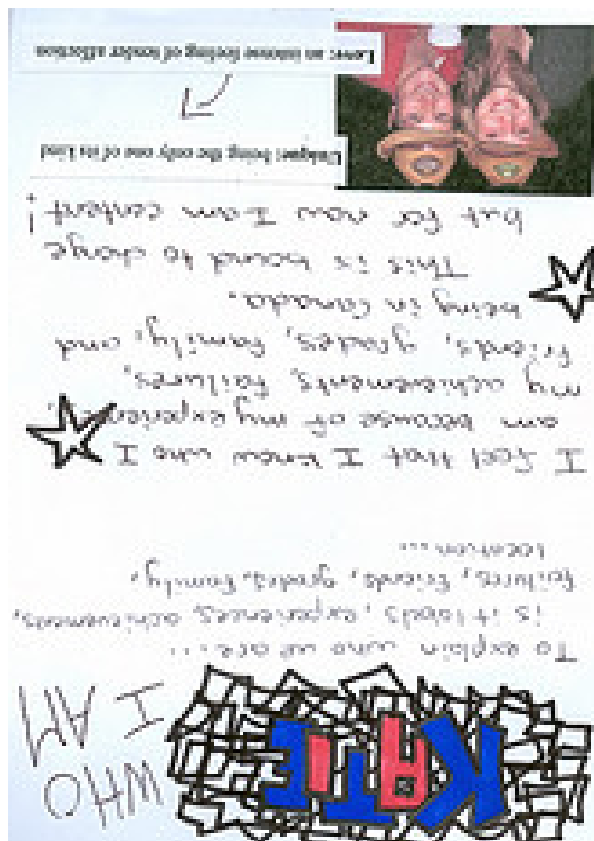 KATIE
WHO
I AM
To explain who we are...
is it labels, experiences, achievements,
failures, friends, grades, family,
location...
I feel that I know who I
am because of my experiences,
my achievements, failures,
friends, grades, family, and
being in Canada.
This is bound to change
but for now I am content!
Unique: being the only one of its kind
Love: an intense feeling of tender affection